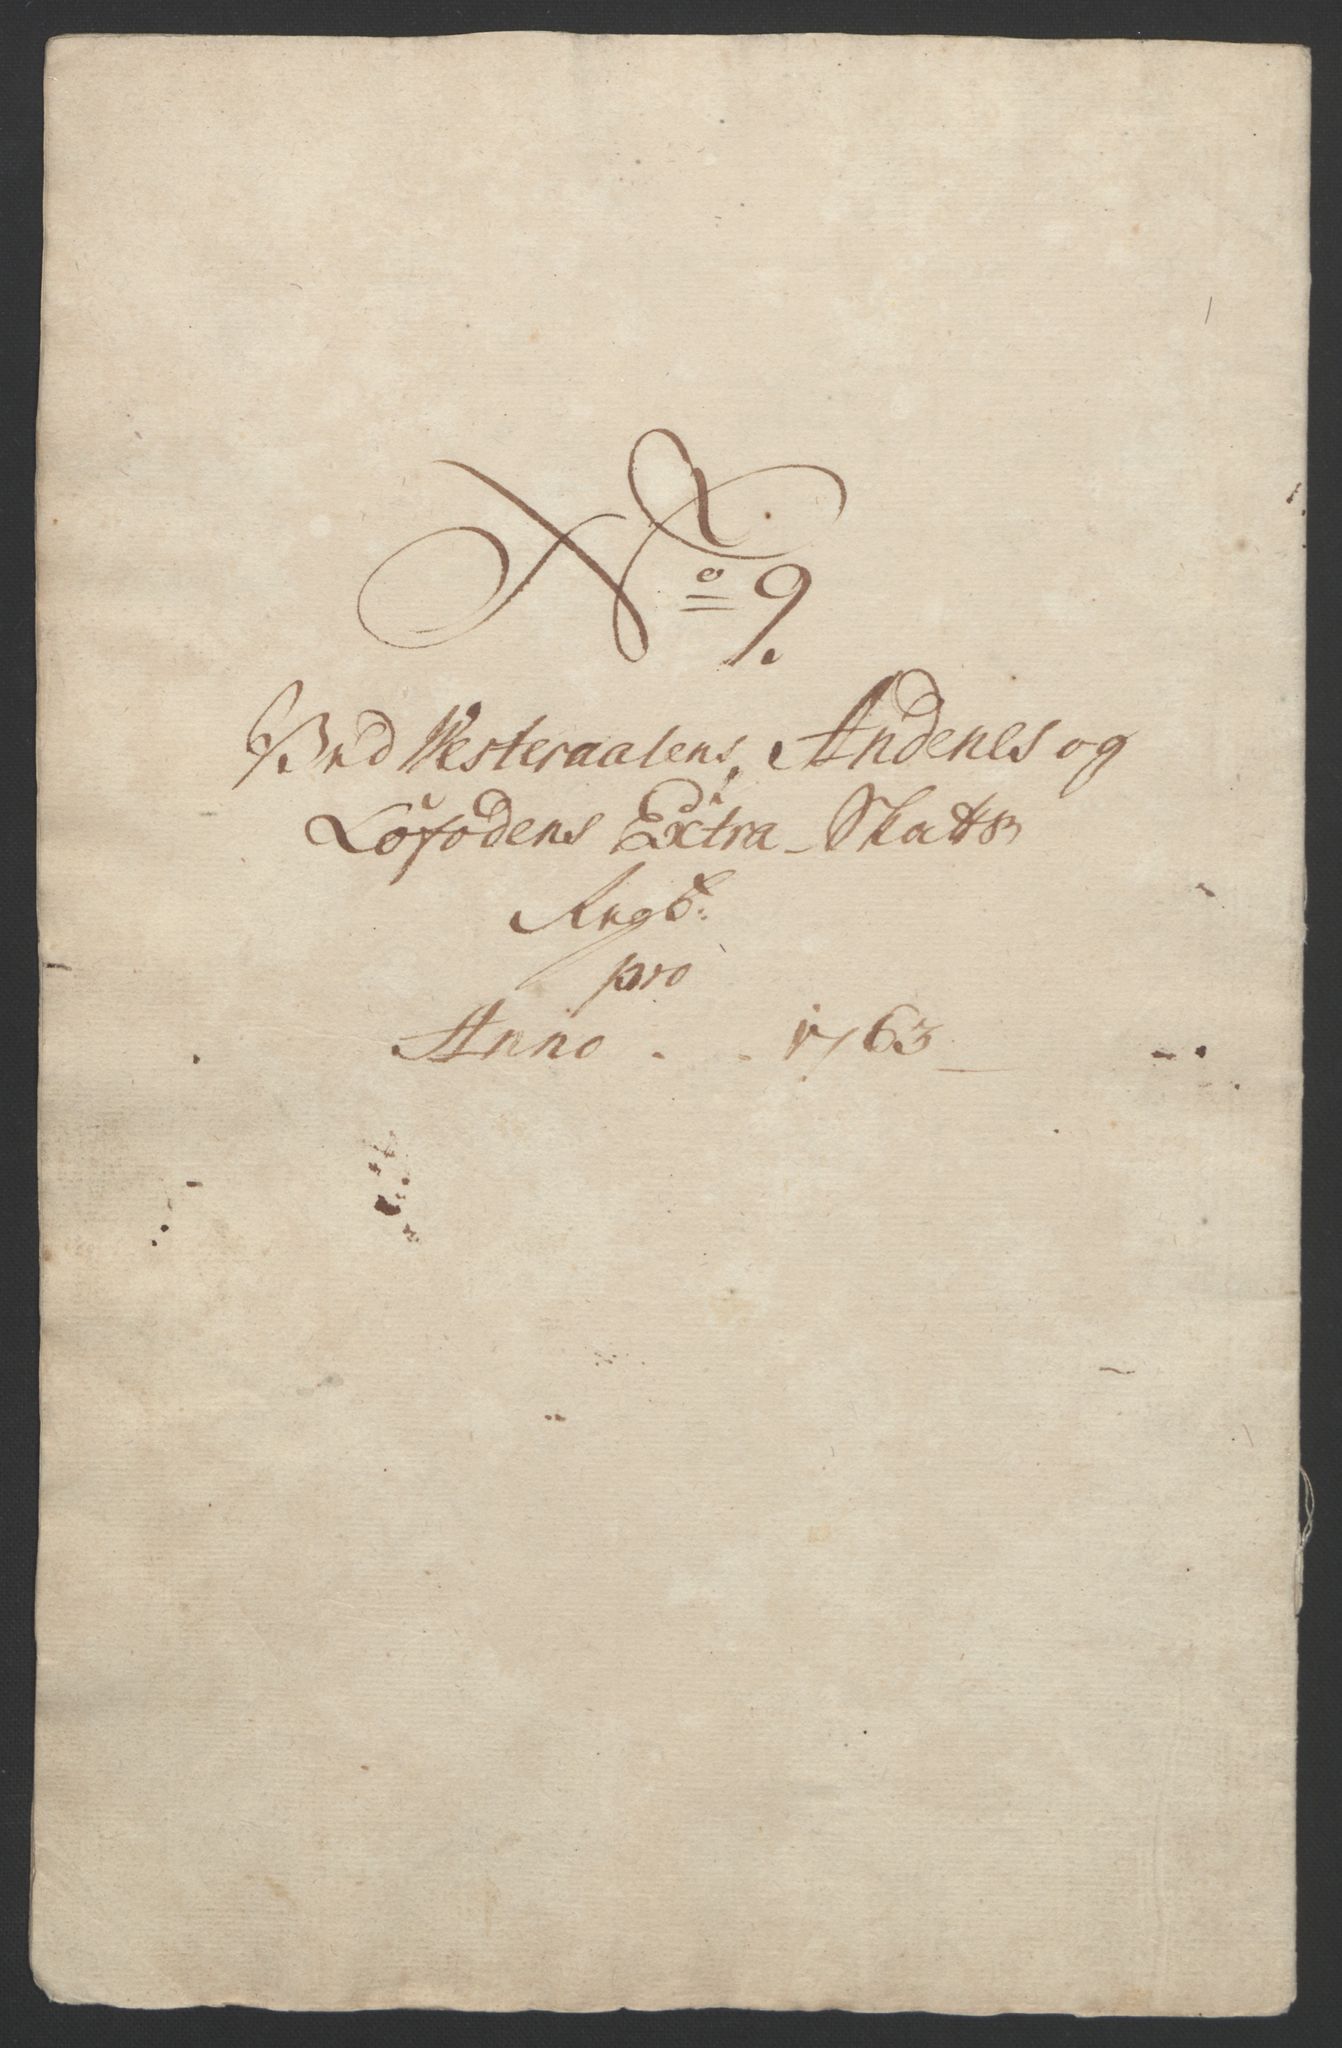 No 9.
Ved Westeraalens, Andenes og
Lofodens Extra Skatts
Regb:
pro
Anno 1763